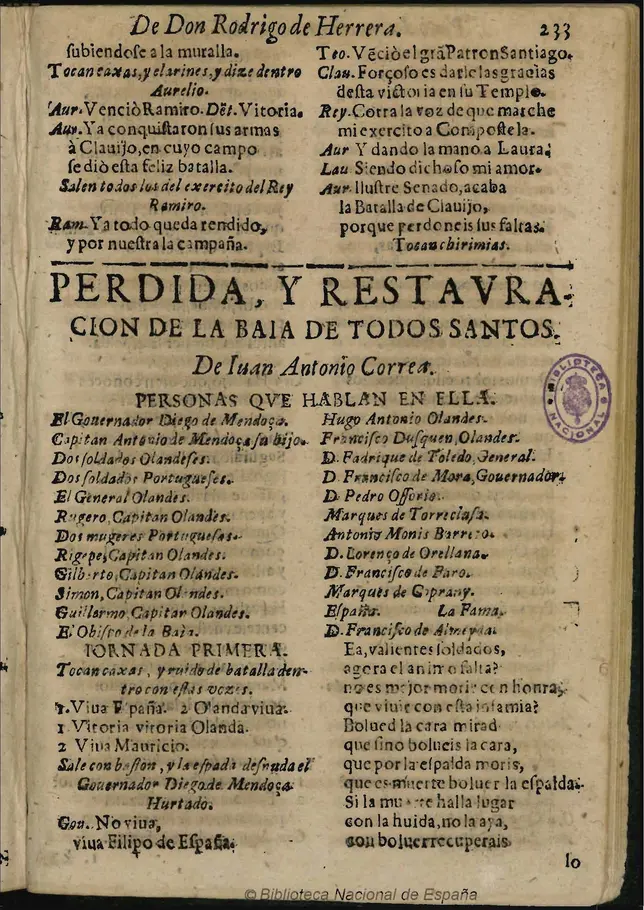 De Don Rodrigo de Herrera. 233
ſubiendoſe a la muralla.
Tocan caxas, y clarines, y dize dentro
Aurelio.
Aur. Venciò Ramiro. Dẽt. Vitoria.
Aur. Ya conquiſtaron ſus armas
à Clauijo, en cuyo campo
ſe diò eſta feliz batalla.
Salen todos los del exercito del Rey
Ramiro.
Ram. Ya todo queda rendido,
y por nueſtra la campaña.
Teo. Vẽciò el grã Patron Santiago.
Clau. Forçoſo es darle las gracias
deſta victoria en ſu Templo.
Rey. Corra la voz de que marche
mi exercito a Compoſtela.
Aur Y dando la mano a Laura;
Lau Siendo dichoſo mi amor.
Aur. Iluſtre Senado, acaba
la Batalla de Clauijo,
porque perdoneis ſus faltas.
Tocan chirimias.
PERDIDA, Y RESTAVRA-
CION DE LA BAIA DE TODOS SANTOS.
De Iuan Antonio Correa.
PERSONAS QVE HABLAN EN ELLA.
El Gouernador Diego de Mendoça.
Capitan Antonio de Mendoça ſu hijo.
Dos ſoldados Olandeſes.
Dos ſoldados Portugueſes.
El General Olandes.
Rugero, Capitan Olandes.
Dos mugeres Portugueſas.
Rigepe, Capitan Olandes.
Gilberto, Capitan Olandes.
Simon, Capitan Olandes.
Guillermo, Capitan Olandes.
El Obiſpo de la Baia.
Hugo Antonio Olandes.
Franciſco Duſquen, Olandes.
D. Fadrique de Toledo, General.
D. Franciſco de Mora, Gouernador.
D. Pedro Oſſorio.
Marques de Torreclaſa.
Antonio Monis Barreto.
D. Lorenço de Orellana.
D. Franciſco de Faro.
Marques de Coprany.
Eſpaña. La Fama.
D. Franciſco de Almeyda.
IORNADA PRIMERA.
Tocan caxas, y ruido de batalla den-
tro con eſtas vozes.
1. Viua Eſpaña. 2 Olanda viua.
1 Vitoria vitoria Olanda.
2 Viua Mauricio.
Sale con baſton, y la eſpada deſnuda el
Gouernador Diego de Mendoça
Hurtado.
Gou. No viua,
viua Filipo de Eſpaña.
Ea, valientes ſoldados,
agora el animo falta?
no es mejor morir con honra,
que viuir con eſta infamia?
Bolued la cara mirad
que ſino bolueis la cara,
que por la eſpalda moris,
que es muerte boluer la eſpalda.
Si la muerte halla lugar
con la huida, no la aya,
con boluer recuperais
lo
BIBLIOTECA NACIONAL
© Biblioteca Nacional de España